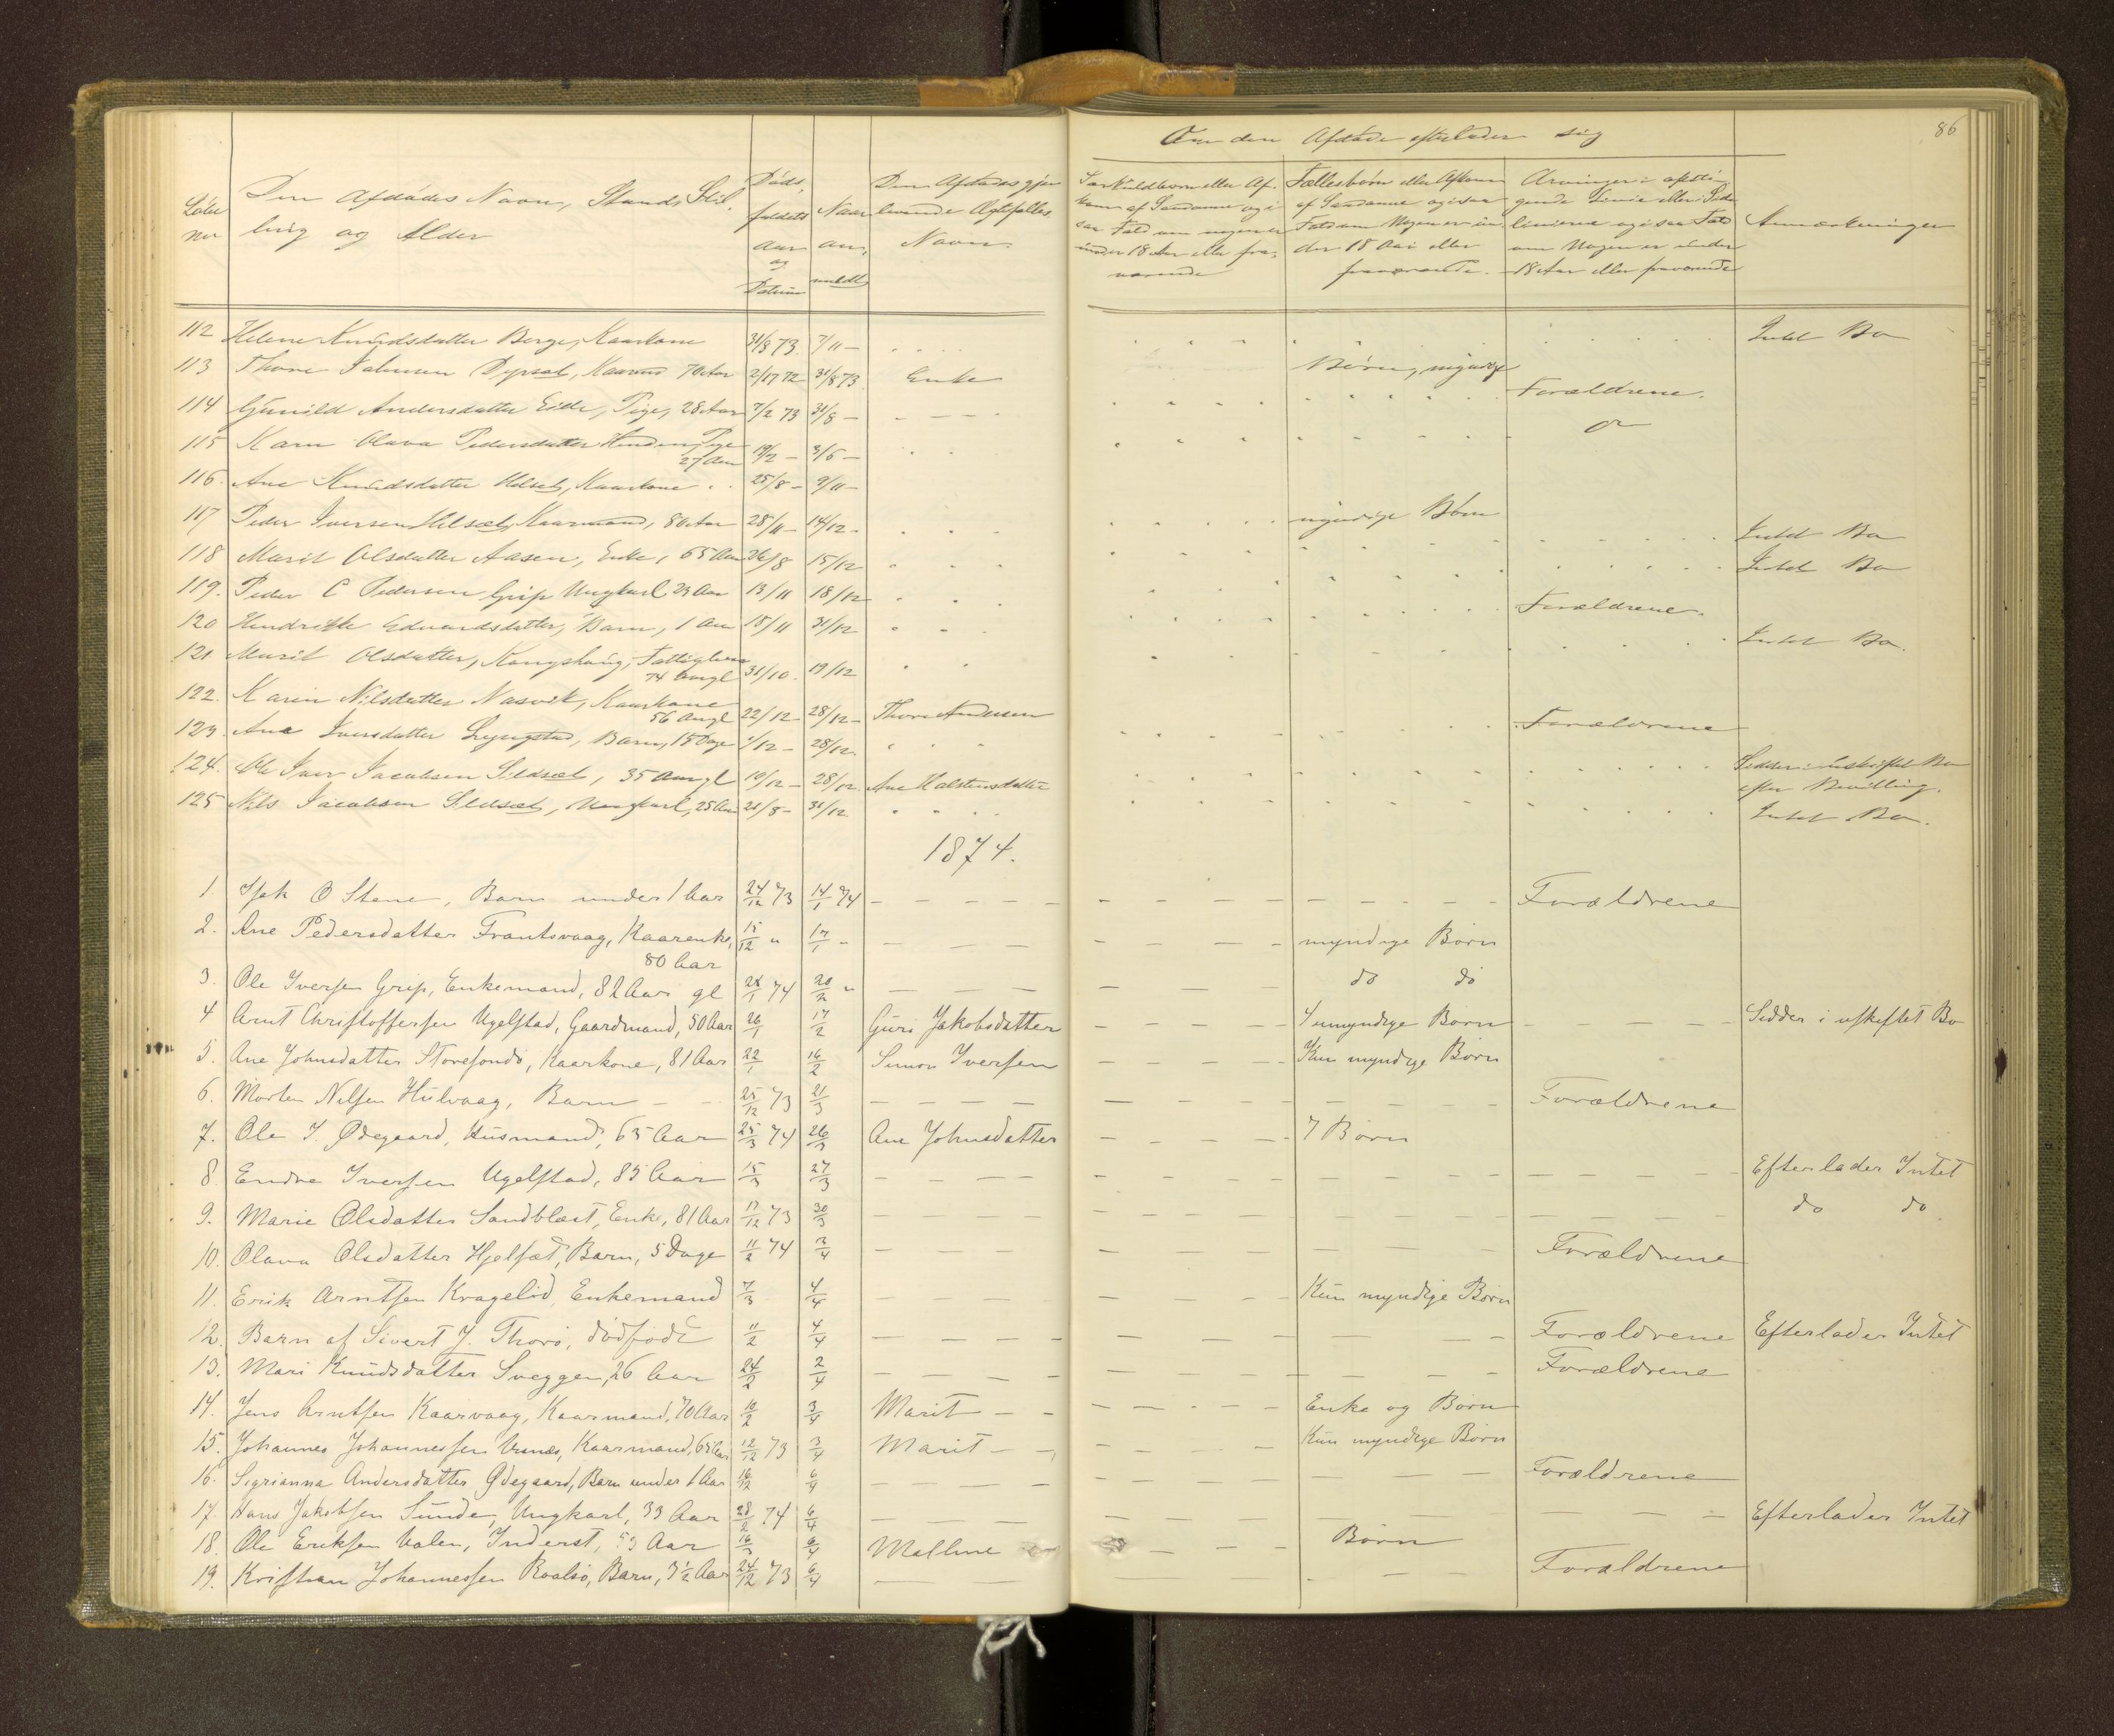 86
Om den Afdøde efterlader sig
Løbe No
Den Afdødes Navn, Stand, Stil-
ling og Alder
Døds-
faldets
Aar
og
Datum
Naar
an-
meldt
Den Afdødes gjen-
levende Ægtefælles
Navn.
Særkuldbørn eller Af-
kom af Saadanne og i
saa Fald om nogen er
under 18 Aar eller fra-
værende
Fællesbørn eller Afkom
af Saadanne og i saa
Fald om Nogen er un-
der 18 Aar eller
fraværende.
Arvinger i opsti-
gende Linie eller i Side
linierne og i saa Fald
om Nogen er under
18 Aar eller fraværende
Anmærkninger
112 Helene Knudsdatter Berge, Kaarkone 31/8 73. 7/11 - Intet Bo
113 Thore Johnsen Dyrset, Kaarmd 70 Aar 2/17 72 31/8 73. Enke Børn, myndige
114 Gunild Andersdatter Eide, Pige, 28 Aar 7/2 73 31/8 - Forældrene.
115 Karn Olava Pedersdatter Henden Pige
27 Aar 19/2 - 3/6 - do
116. Ane Knudsdatter Helset, Kaarkone 25/8 - 9/11 -
117 Peder Iversen Helset, Kaarmand, 80 Aar 28/11 - 14/12 - myndige Børn
118 Marit Olsdatter Aasen, Enke, 65 Aar 26/8 15/12 Intet Bo
119. Peder C Pedersen Grip Ungkarl 23 Aar 13/11 18/12 Intet Bo
120 Hendrikke Edvardsdatter, Barn, 1 Aar 15/11 31/12 Forældrene.
121. Marit Olsdatter, Kongshaug, Fattiglem
74 Aar gl 31/10. 19/12 Intet Bo.
122. Karen Nilsdatter Nasvik, Kaarkone
56 Aar gl 22/12 - 28/12 - Thore Andersen
123. Ane Iversdatter Lyngstad, Barn, 15 Dage 1/12 - 28/12. Forældrene
124. Ole Iver Jacobsen Sildset, 35 Aar gl 10/12 - 28/12. Ane Halstensdatter Sidder i uskiftet Bo
efter Bevilling.
125 Nils Jacobsen Sildset, Ungkarl, 25 Aar 21/8 - 31/12 Intet Bo.
1874.
1. O Stene, Barn under 1 Aar 24/12 73 14/1 74 Forældrene
2. Ane Pedersdatter Frantsvaag, Kaarenke, 15/12 " 17/1 - myndige Børn
80 Aar
3. Ole Iversen Grip, Enkemand, 82 Aar gl 28/1 74 20/2 " do do
4 Arnt Christoffersen Ugelstad, Gaardmand, 50 Aar 26/1 17/2 Guri Jakobsdatter 4 umyndige Børn Sidder i uskiftet Bo
5. Ane Johnsdatter Storesond, Kaarkone, 81 Aar 22/1 16/2 Simon Iversen Kun myndige Børn
6. Morten Nilsen Hulvaag, Barn 25/12 73 21/3 Forældrene
7. Ole J. Ødegaard, Husmand, 65 Aar 25/3 74 26/3 Ane Johnsdatter 7 Børn
8. Endre Iversen Ugelstad, 85 Aar 15/3 27/3 Efterlader Intet
9. Marie Olsdatter Sandblæst, Enke, 81 Aar 17/12 73 30/3 do do
10. Olava Olsdatter Hjelset, Barn, 5 Dage 11/2 74 3/4 Forældrene
11. Erik Arntsen Kvagelid, Enkemand 7/3 4/4 Kun myndige Børn
12. Barn af Sivert J. Thorø, dødfødt 11/2 4/4 Forældrene Efterlader Intet
13. Mari Knudsdatter Sveggen, 26 Aar 24/2 2/4 Forældrene
14. Jens Arntsen Kaarvaag, Kaarmand, 70 Aar 10/2 3/4 Marit Enke og Børn
15. Johannes Johannessen Aunes, Kaarmand, 65 Aar 12/12 73 3/4 Marit Kun myndige Børn
16. Sigrianna Andersdatter Ødegaard, Barn under 1 Aar 16/12 6/4 Forældrene
17. Hans Jakobsen Sunde, Ungkarl, 33 Aar 28/2 74 6/4 Efterlader Intet
18. Ole Eriksen Valen, Inderst, Aar 16/3 6/4 Malline Børn
19. Kristian Johannessen Roalsø, Barn, 3½ Aar 24/12 73 6/4 Forældrene